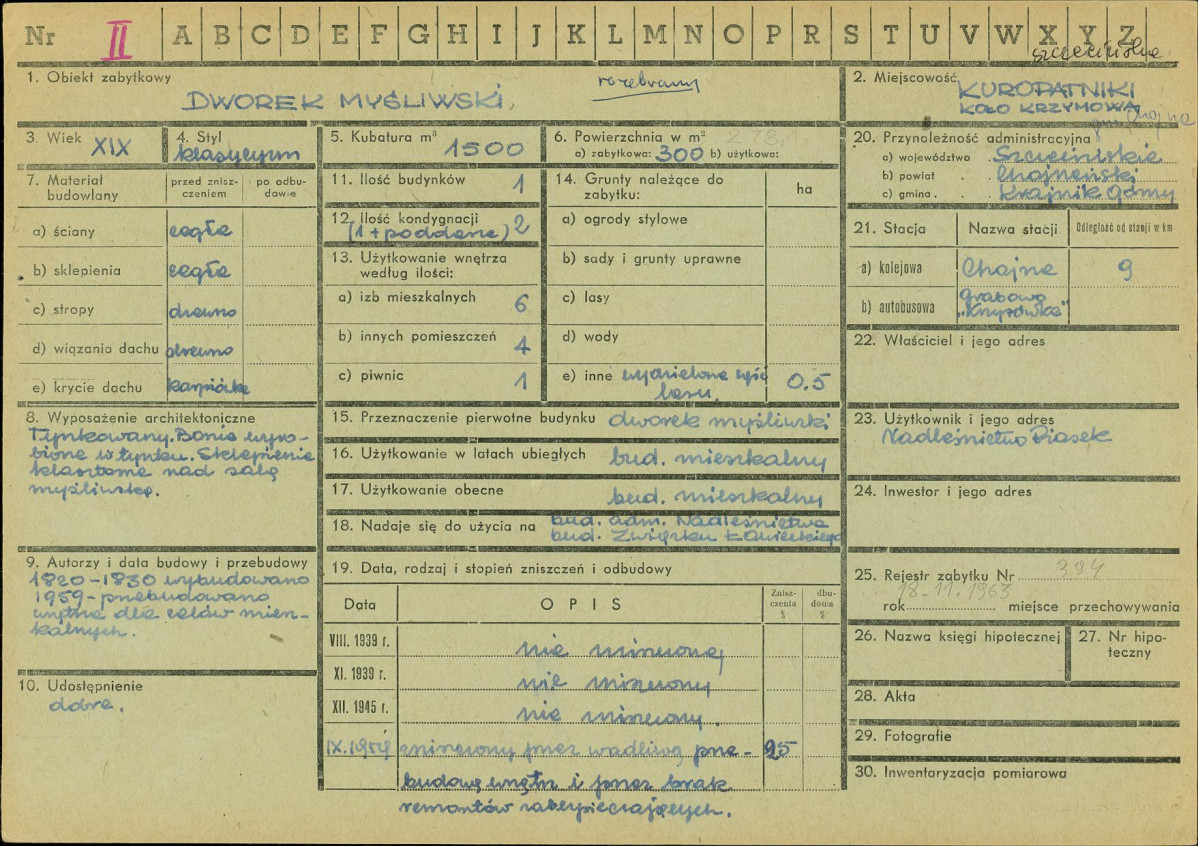 Nr II A B C D E F G H I J K L M N O P R S T U V W X Y Z
szczecińskie
1. Obiekt zabytkowy
rozebrany
DWOREK MYŚLIWSKI,
2. Miejscowość
KUROPATNIKI
KOŁO KRZYMOWA
gm. Chojna
3. Wiek XIX
4. Styl
klasycyzm
5. Kubatura m³
1500
6. Powierzchnia w m²
a) zabytkowa: 300 b) użytkowa:
20. Przynależność administracyjna
a) województwo . Szczecińskie
b) powiat . . Chojneński
c) gmina . . Krajnik Górny
7. Materiał budowlany
przed znisz-
czeniem
po odbu-
dowie
a) ściany cegła
b) sklepienia cegła
c) stropy drewno
d) wiązania dachu drewno
e) krycie dachu karpiówka
11. Ilość budynków 1
12. Ilość kondygnacji
(1 + poddasze) 2
13. Użytkowanie wnętrza
według ilości:
a) izb mieszkalnych 6
b) innych pomieszczeń 4
c) piwnic 1
14. Grunty należące do
zabytku:
ha
a) ogrody stylowe
b) sady i grunty uprawne
c) lasy
d) wody
e) inne wydzielona część
lasu. 0.5
21. Stacja Nazwa stacji Odległość od stacji w km
a) kolejowa Chojna 9
b) autobusowa Grabowo
"Krzyżówka"
22. Właściciel i jego adres
8. Wyposażenie architektoniczne
Tynkowany. Bonie wyro-
bione w tynku. Sklepienie
klasztorne nad salą
myśliwską.
15. Przeznaczenie pierwotne budynku dworek myśliwski
16. Użytkowanie w latach ubiegłych bud. mieszkalny
17. Użytkowanie obecne bud. mieszkalny
18. Nadaje się do użycia na bud. adm. Nadleśnictwa
bud. Związku Łowieckiego
23. Użytkownik i jego adres
Nadleśnictwo Piasek
24. Inwestor i jego adres
9. Autorzy i data budowy i przebudowy
1820-1830 wybudowano
1959-przebudowano
wnętrza dla celów miesz-
kalnych.
10. Udostępnienie
dobre.
19. Data, rodzaj i stopień zniszczeń i odbudowy
Data OPIS
Znisz-
czenia
%
dbu-
dowa
%
VIII. 1939 r. nie zniszczony
XI. 1939 r. nie zniszczony
XII. 1945 r. nie zniszczony.
IX.1959 zniszczony przez wadliwą prze- 25
budowę wnętrz i przez brak
remontów zabezpieczających.
25. Rejestr zabytku Nr 394
18-11.1963
rok miejsce przechowywania
26. Nazwa księgi hipotecznej
27. Nr hipo-
teczny
28. Akta
29. Fotografie
30. Inwentaryzacja pomiarowa